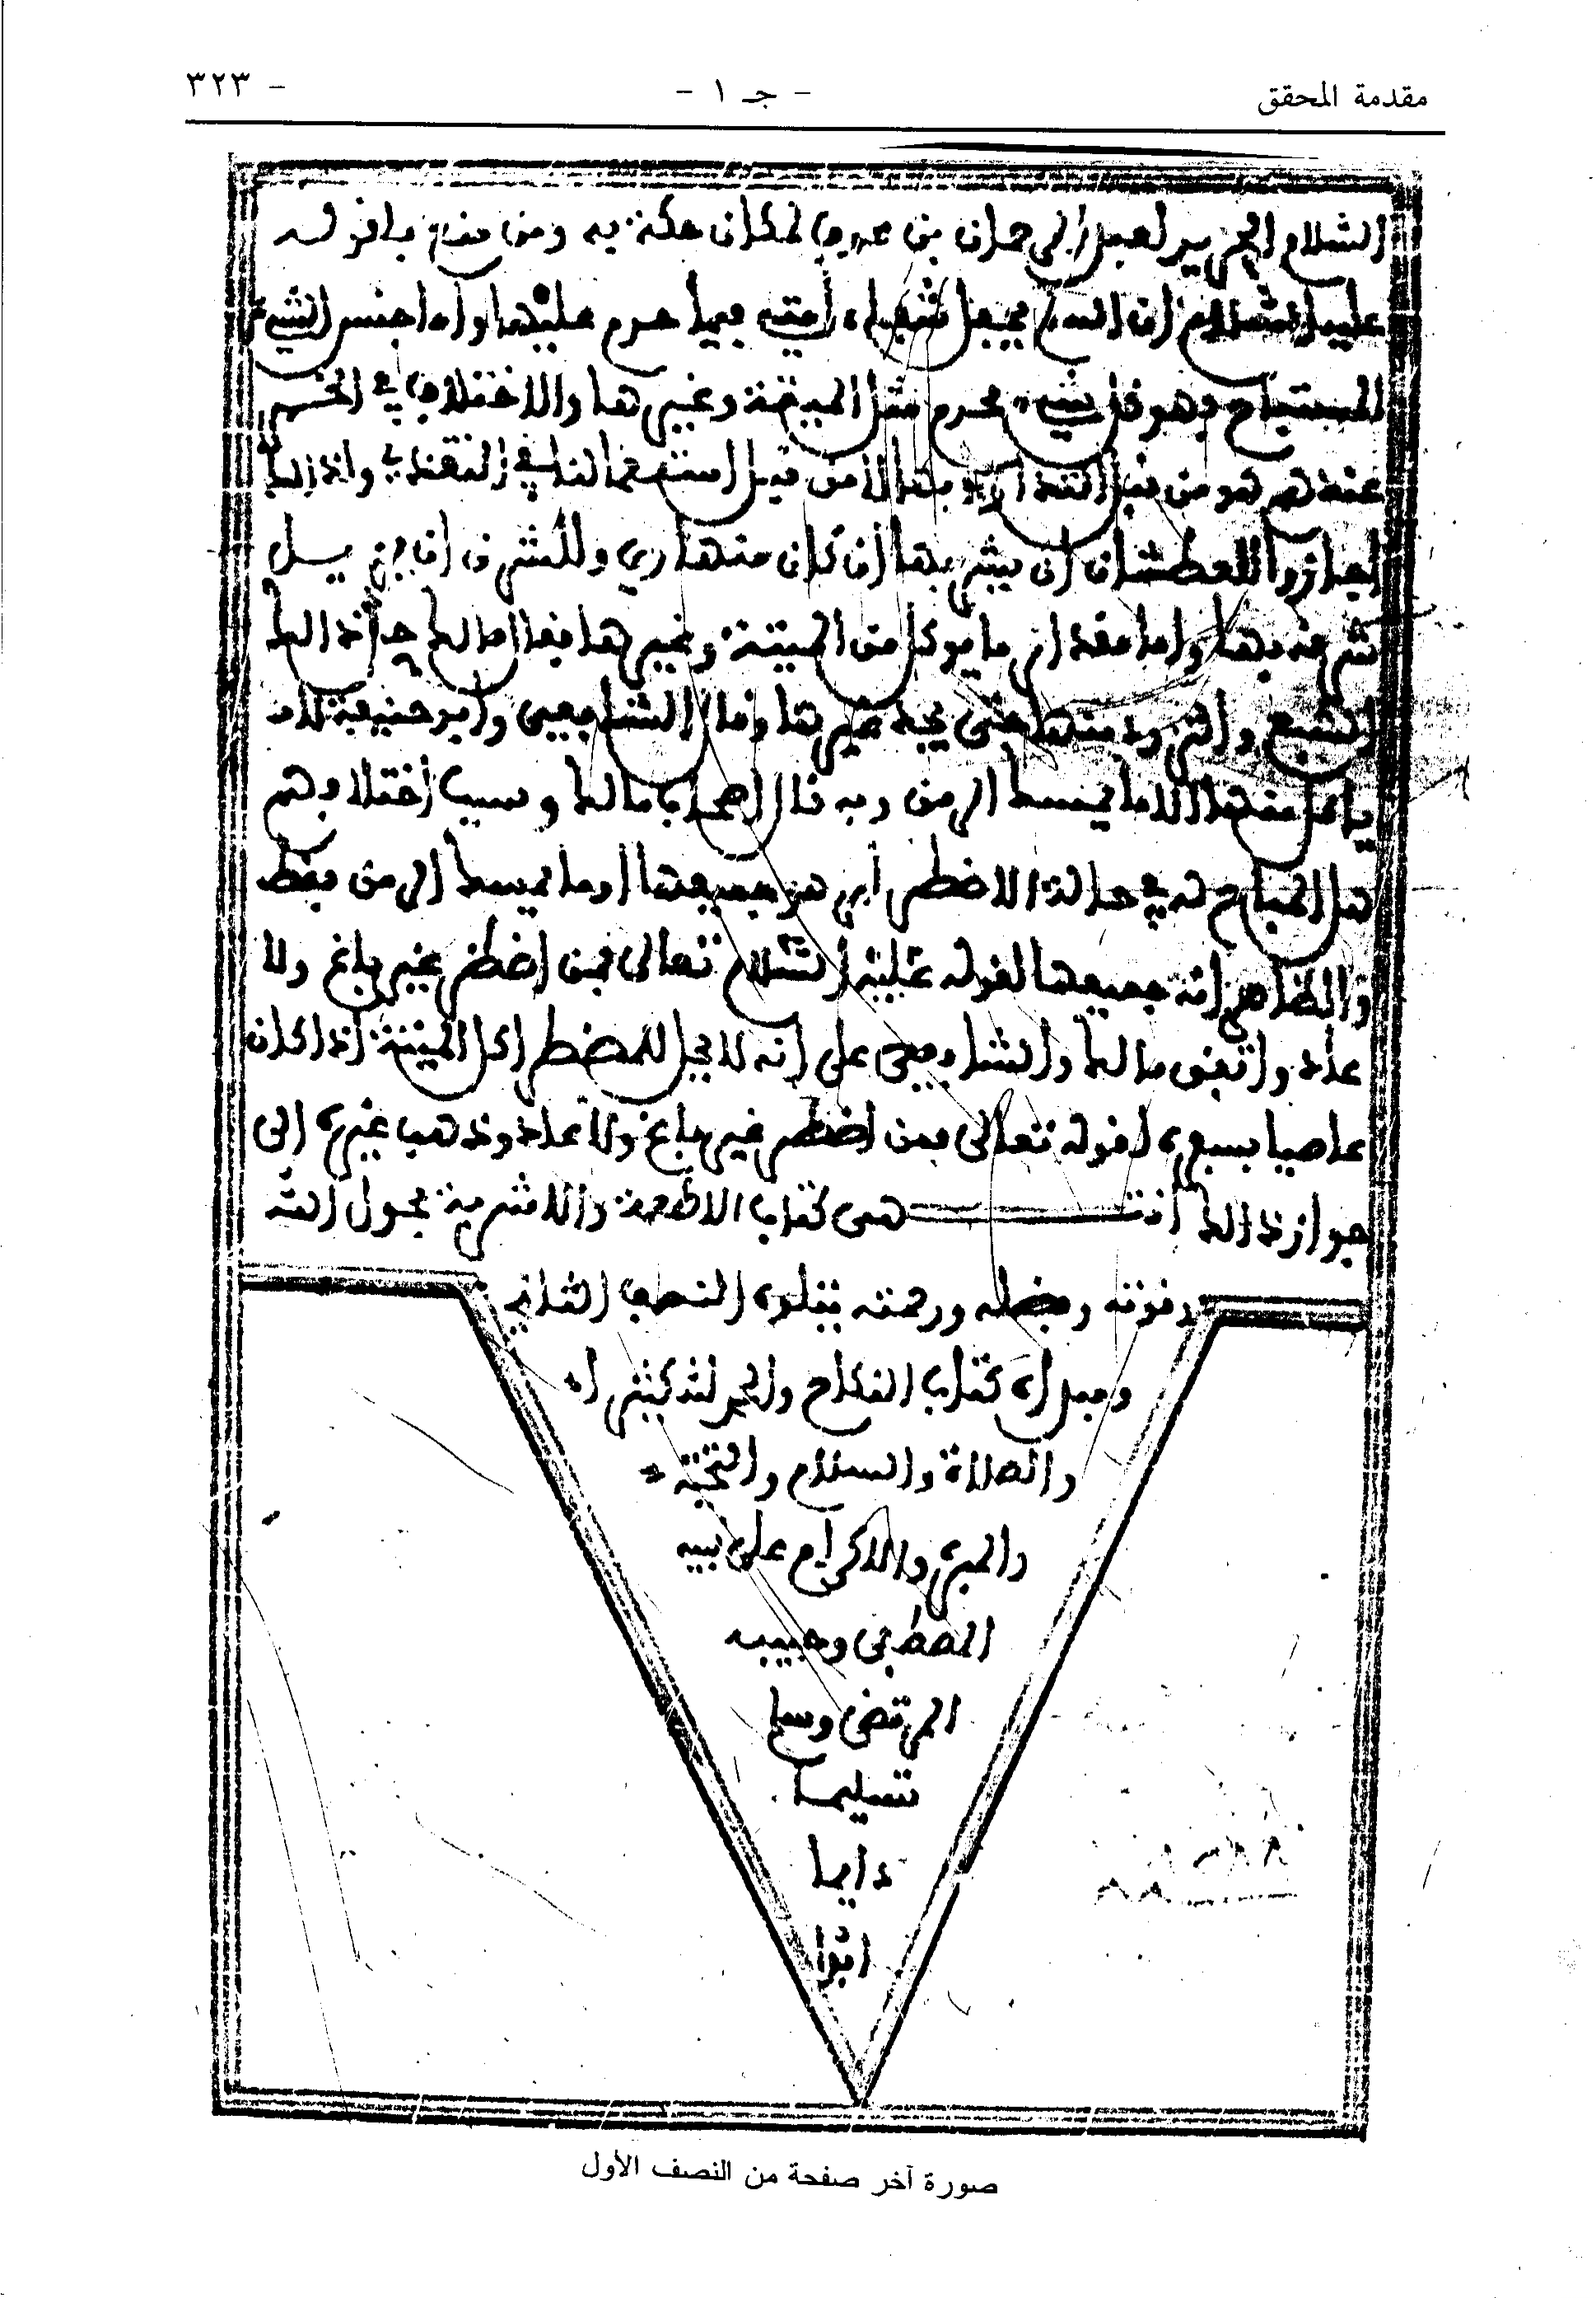 مقدمة المحقق - جـ ١ - - ٣٢٣
السلام الحرير لعبد الرحمان بن عوف لمكان حكة به ومن منعه فلقوله
عليه السلام ان الله لم يجعل شفاء امتي فيما حرم عليها واما جنس الشيء
المستباح فهو كل شيء محرم مثل الميتة وغيرها والاختلاف في الخمر
عندهم هو من قبل التداوي بها لا من قبل استعمالها في التغذي ولذالك
اجازوا للعطشان ان يشربها ان كان منها ري وللشرق ان يزيل
شرقه بها واما مقدار ما يوكل من الميتة وغيرها فقال مالك حد ذالك
الشبع والتزود منها حتى يجد غيرها وقال الشافعي وابو حنيفة لا
ياكل منها الا ما يمسك الرمق وبه قال اصحاب مالك وسبب اختلافهم
هل المباح له في حالة الاضطرار هو جميعها او ما يمسك الرمق فقط
والظاهر انه جميعها لقوله عليه السلام تعالى فمن اضطر غير باغ ولا
عاد واتفق مالك والشافعي على انه لا يحل للمضطر اكل الميتة اذا كان
عاصيا بسفره لقوله تعالى فمن اضطر غير باغ ولا عاد وذهب غيره الى
جواز ذالك انتهى كتاب الاطعمة والاشربة بحول الله
وقوته وفضله ورحمته يتلوه النصف الثاني
ومبداه كتاب النكاح والحمد لله كثيرا
والصلاة والسلام والتحية
والبر والاكرام على نبيه
المصطفى وحبيبه
المرتضى وسلم
تسليما
دايما
ابدا
صورة آخر صفحة من النصف الأول